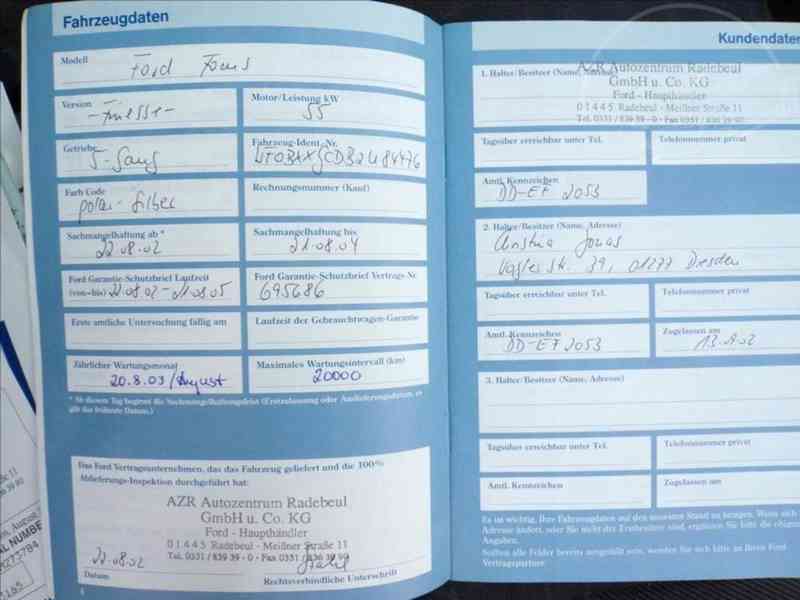 Fahrzeugdaten
Modell
Ford Focus
Version
- Finesse -
Motor/Leistung kW
55
Getriebe
5-Gang
Fahrzeug-Ident.-Nr.
Farb Code
polar-silber
Rechnungsnummer (Kauf)
Sachmangelhaftung ab *
22.08.02
Sachmangelhaftung bis
21.08.04
Ford Garantie-Schutzbrief Laufzeit
(von–bis) 22.08.02 - 21.08.05
Ford Garantie-Schutzbrief Vertrags-Nr.
695686
Erste amtliche Untersuchung fällig am
Laufzeit der Gebrauchtwagen-Garantie
Jährlicher Wartungsmonat
20.8.03 / August
Maximales Wartungsintervall (km)
20000
* Ab diesem Tag beginnt die Sachmangelhaftungsfrist (Erstzulassung oder Auslieferungsdatum, es
gilt das frühere Datum.)
Das Ford Vertragsunternehmen, das das Fahrzeug geliefert und die 100%
Ablieferungs-Inspektion durchgeführt hat:
AZR Autozentrum Radebeul
GmbH u. Co. KG
Ford - Haupthändler
01445 Radebeul - Meißner Straße 11
Tel. 0351 / 839 39 - 0 - Fax 0351 / 836 39 90
22.08.02
Datum
Rechtsverbindliche Unterschrift
4
Kundendaten
1. Halter/Besitzer (Name, Adresse)
AZR Autozentrum Radebeul
GmbH u. Co. KG
Ford - Haupthändler
01445 Radebeul - Meißner Straße 11
Tel. 0351 / 839 39 - 0 - Fax 0351 / 839 39 90
Tagsüber erreichbar unter Tel.
Telefonnummer privat
Amtl. Kennzeichen
DD-EF 2053
2. Halter/Besitzer (Name, Adresse)
Jonas
39, 01277 Dresden
Tagsüber erreichbar unter Tel.
Telefonnummer privat
Amtl. Kennzeichen
DD-EF 2053
Zugelassen am
3. Halter/Besitzer (Name, Adresse)
Tagsüber erreichbar unter Tel.
Telefonnummer privat
Amtl. Kennzeichen
Zugelassen am
Es ist wichtig, Ihre Fahrzeugdaten auf den neuesten Stand zu bringen. Wenn sich
Adresse ändert, oder Sie nicht der Erstbesitzer sind, ergänzen Sie bitte die obigen
Angaben.
Sollten alle Felder bereits ausgefüllt sein, wenden Sie sich bitte an Ihren Ford
Vertragspartner.